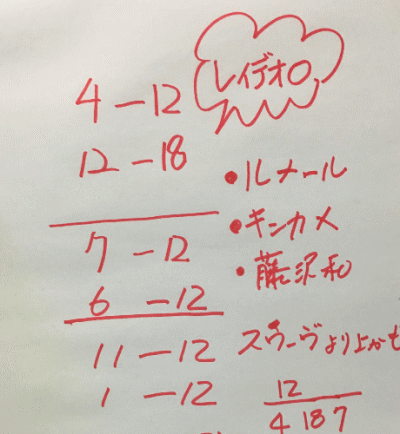 レイデオロ
4-12
12-18
・ルメール
・キンカメ
7-12
・藤沢和
6-12
11-12 スワーヴより上かも
1-12
12
4 18 7